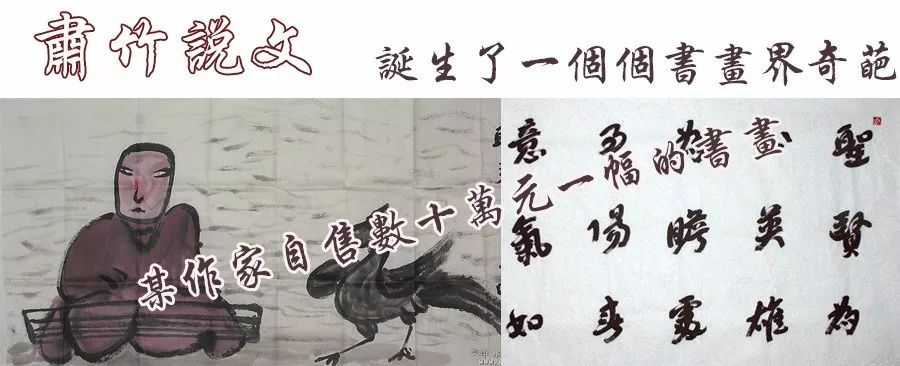 肅竹說文
誕生了一個個書畫界奇葩
某作家自售數十萬元一幅的書畫
聖賢為
英雄
意氣如